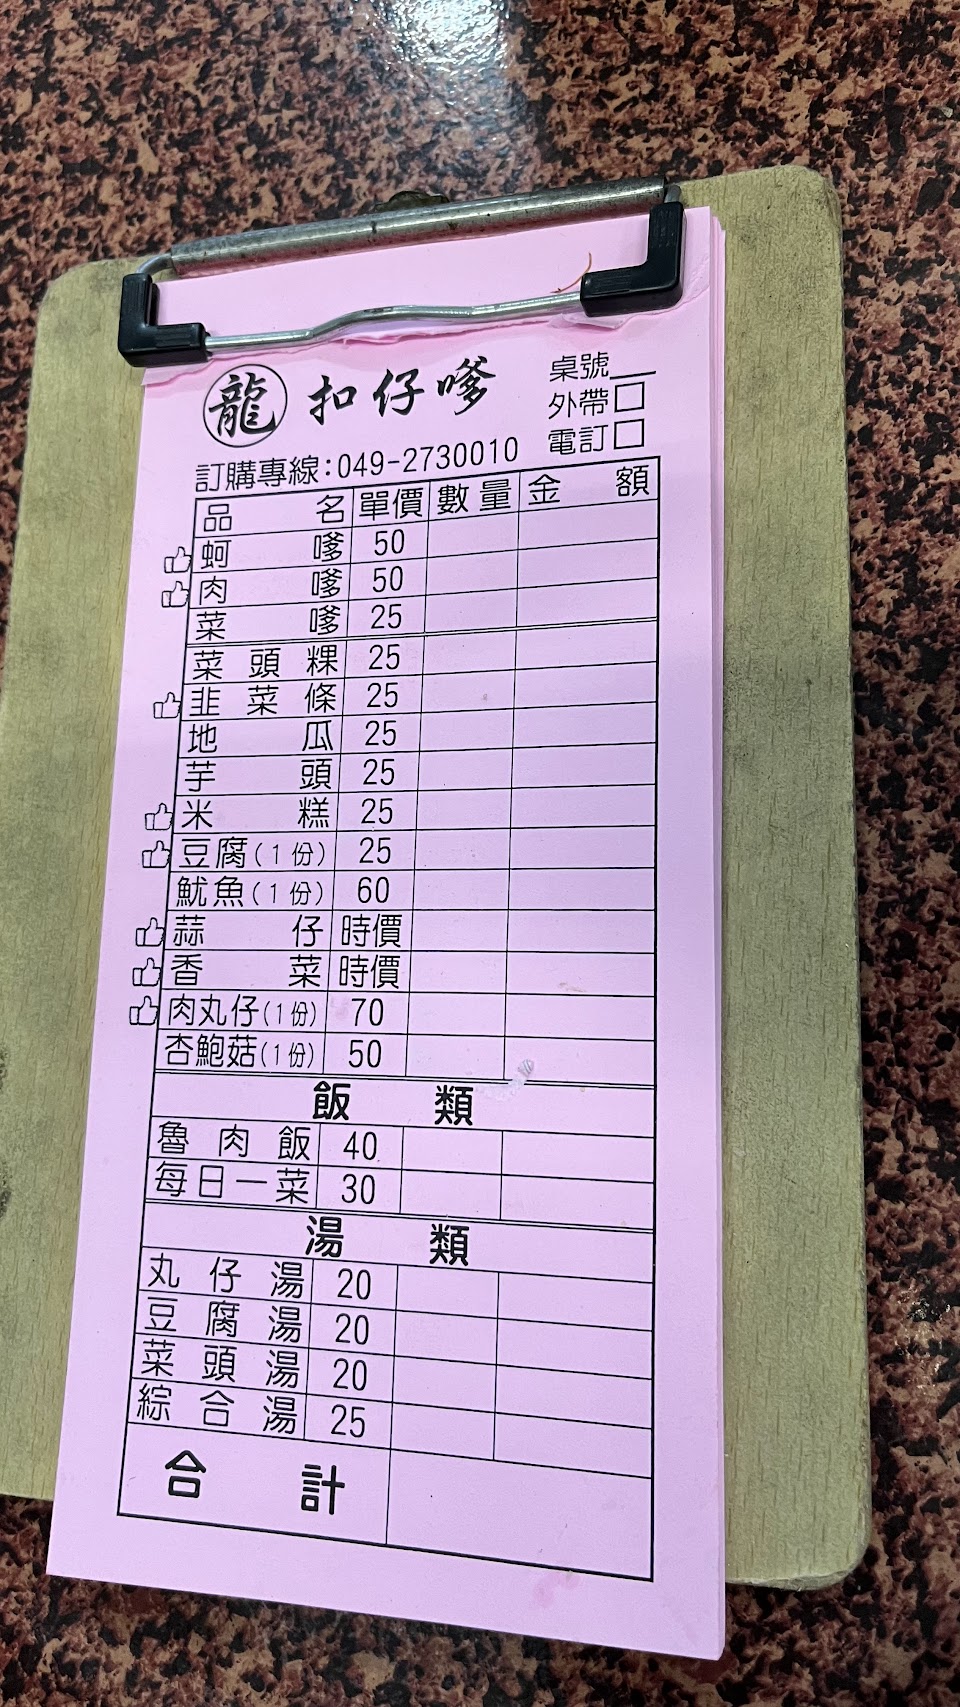 龍 扣仔嗲
桌號__
外帶□
電訂□
訂購專線:049-2730010
品名 單價 數量 金額
蚵嗲 50
肉嗲 50
菜嗲 25
菜頭粿 25
韭菜條 25
地瓜 25
芋頭 25
米糕 25
豆腐(1份) 25
魷魚(1份) 60
蒜仔 時價
香菜 時價
肉丸仔(1份) 70
杏鮑菇(1份) 50
飯類
魯肉飯 40
每日一菜 30
湯類
丸仔湯 20
豆腐湯 20
菜頭湯 20
綜合湯 25
合計